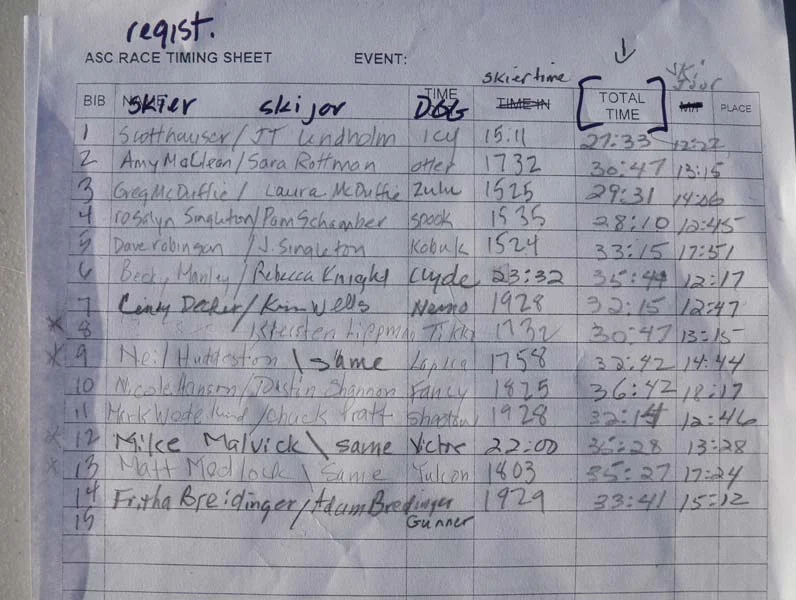 regist.
ASC RACE TIMING SHEET EVENT:
BIB NAME skier skijor TIME DOG skiertime TIME IN TOTAL TIME ski Joor PLACE
1 Scotthauser / JT Lindholm Icy 15:11 27:33 12:22
2 Amy MaClean / Sara Rottman otter 1732 30:47 13:15
3 Greg McDuffie / Laura McDuffie Zulu 1525 29:31 14:06
4 rosalyn Singleton/Pam Schamber spook 1535 28:10 12:45
5 Dave robinson / J. Singleton Kobuk 1524 33:15 17:51
6 Becky Manley / Rebecca Knight Clyde 23:32 12:17
7 Cindy Decker / Kim Wells Nemo 1928 32:15 12:47
x 8 Kiersten Lippman Tikki 1732 30:47 13:15
x 9 Neil Huddestion \ same 1758 32:42 14:44
10 Nicole Hanson / Dustin Shannon Fancy 1825 36:42 18:17
11 Mark / Chuck Pratt Shadow 1928 32:14 12:46
x 12 Mike Malvick \ same Victor 22:00 35:28 13:28
x 13 Matt Medlock \ Same Yukon 1803 35:27 17:24
14 Fritha Breidinger / Adam Bredinger 1929 33:41 15:12
15 Gunner